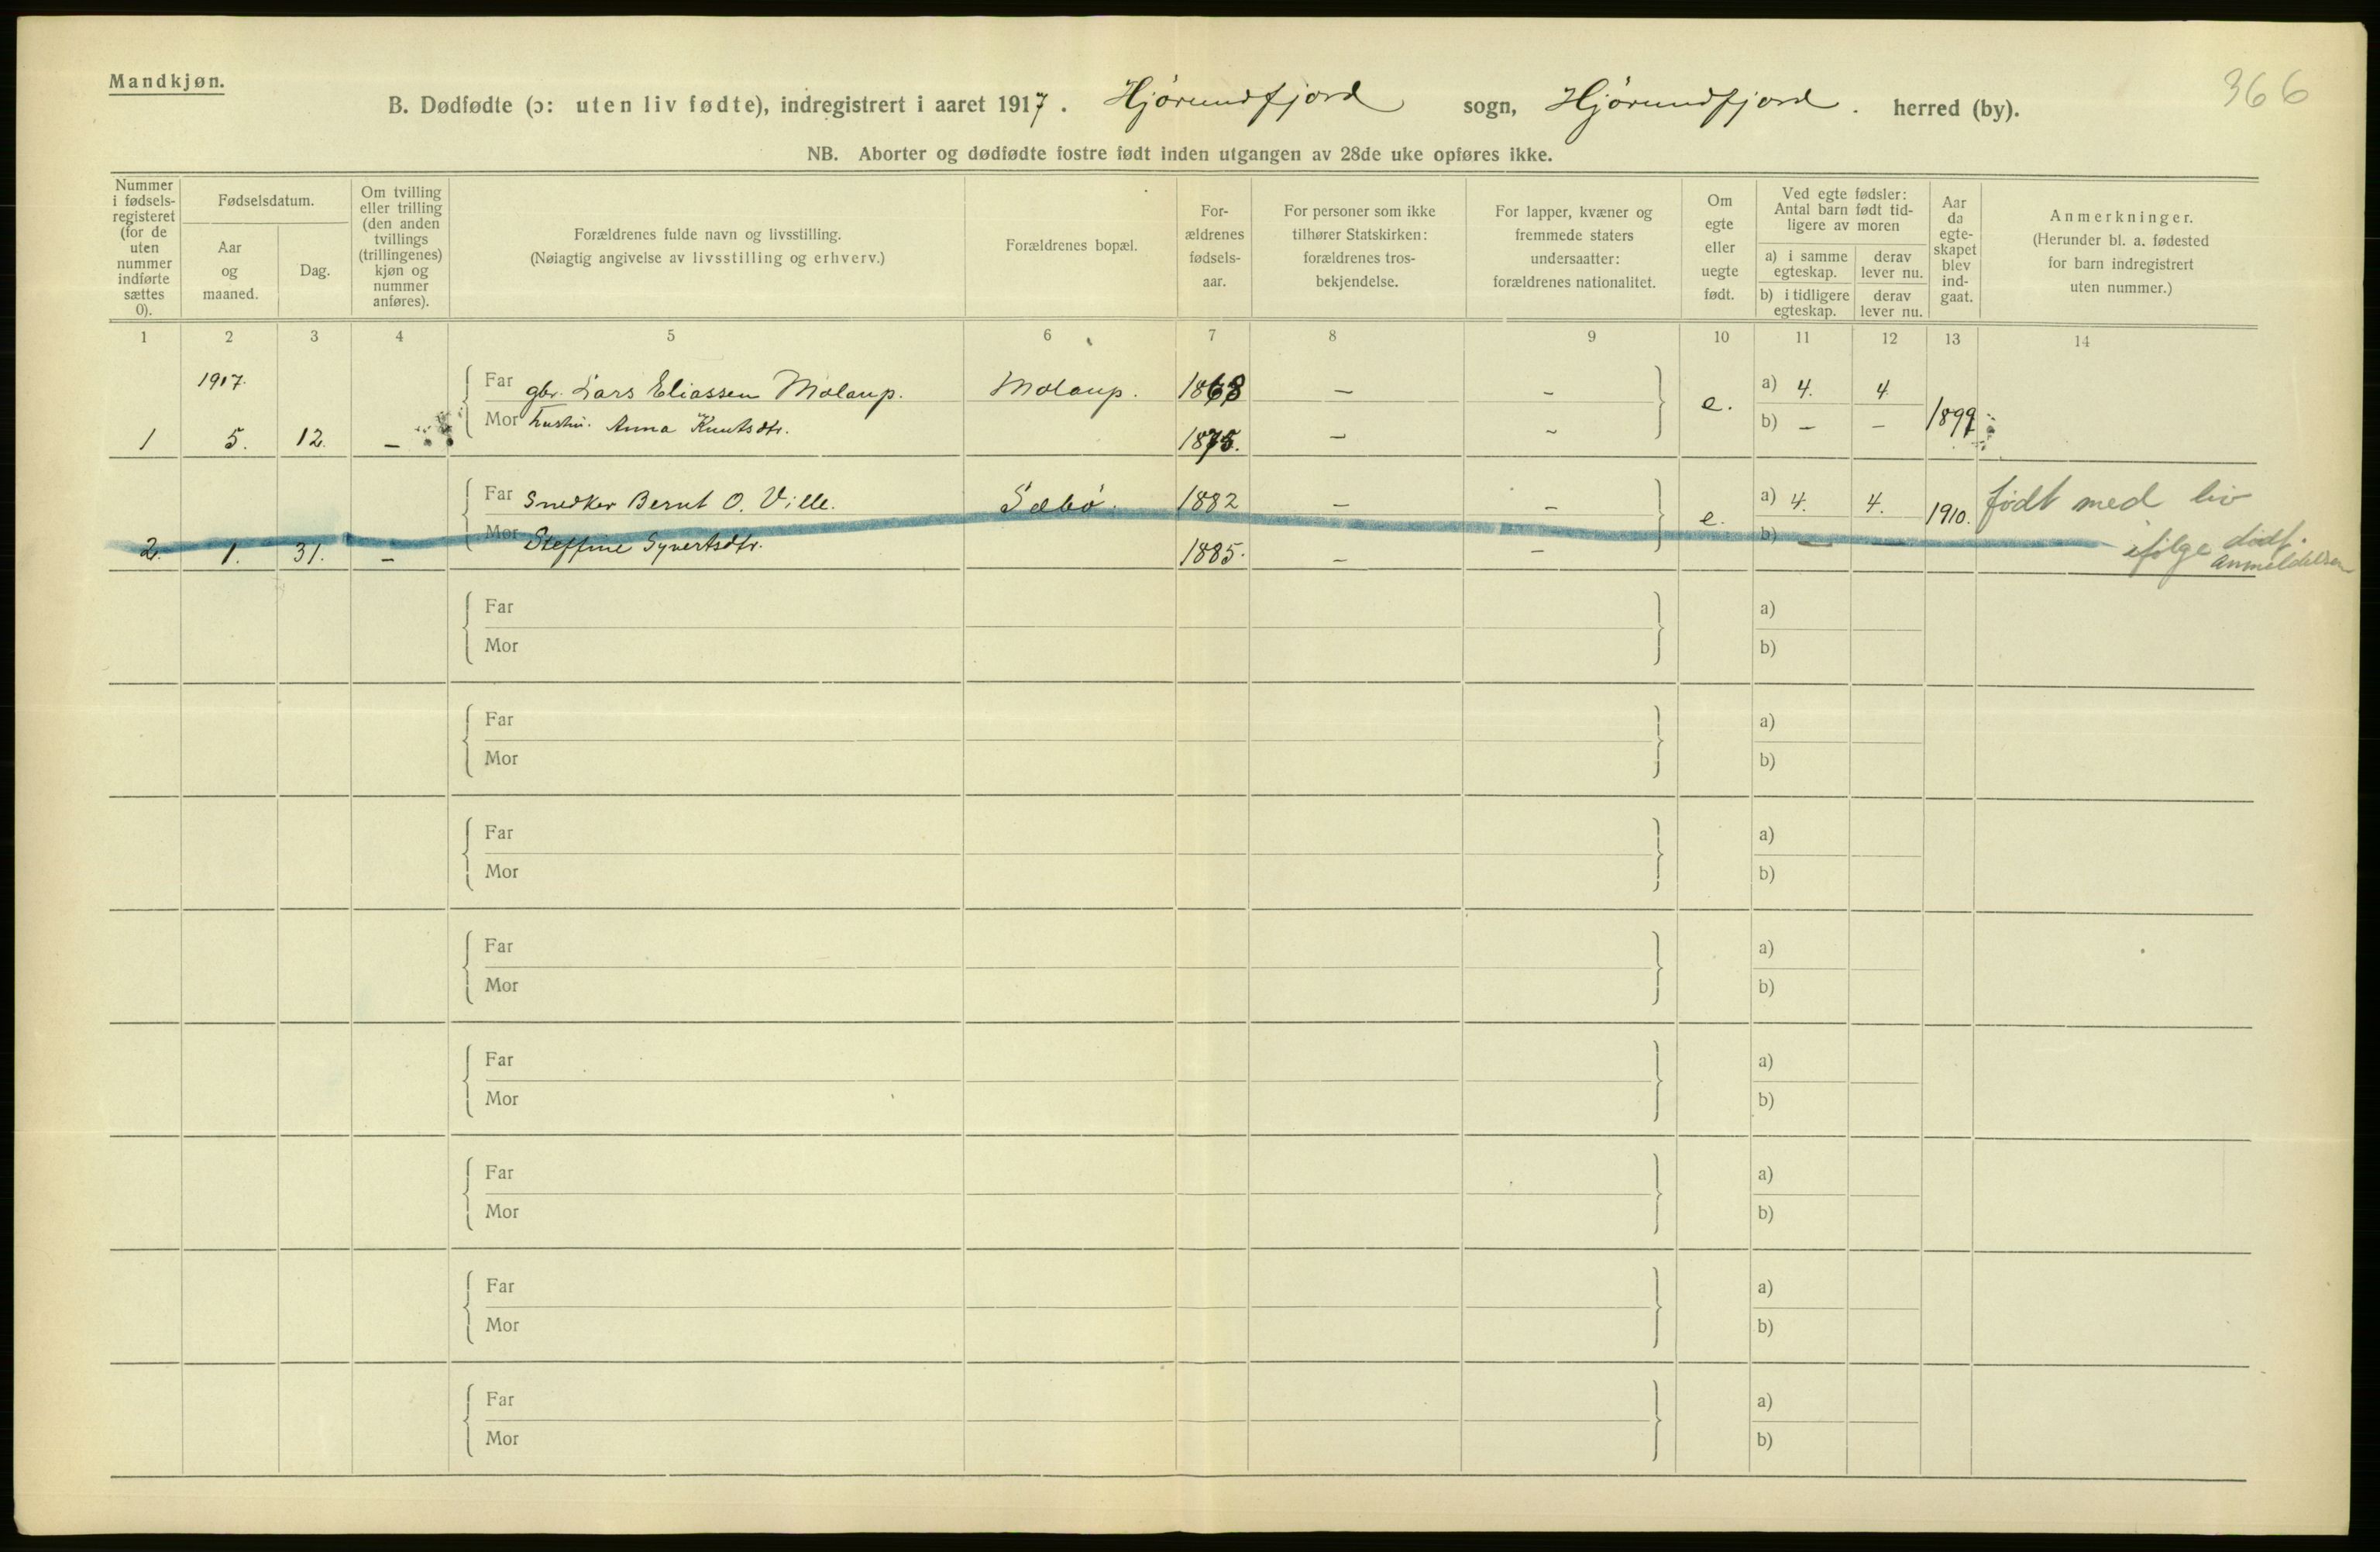 Mandkjøn.
366
B. Dødfødte (ɔ: uten liv fødte), indregistrert i aaret 1917. Hjørundfjord sogn, Hjørundfjord. herred (by).
NB. Aborter og dødfødte fostre født inden utgangen av 28de uke opføres ikke.
Nummer i fødsels-registeret (for de uten nummer indførte sættes 0).
Fødselsdatum.
Aar og maaned.
Dag.
Om tvilling eller trilling (den anden tvillings (trillingenes) kjøn og nummer anføres).
Forældrenes fulde navn og livsstilling.
(Nøiagtig angivelse av livsstilling og erhverv.)
Forældrenes bopæl.
For-ældrenes fødsels-aar.
For personer som ikke tilhører Statskirken: forældrenes tros-bekjendelse.
For lapper, kvæner og fremmede staters undersaatter: forældrenes nationalitet.
Om egte eller uegte født.
Ved egte fødsler: Antal barn født tid-ligere av moren
a) i samme egteskap.
derav lever nu.
b) i tidligere egteskap.
derav lever nu.
Aar da egte-skapet blev ind-gaat.
Anmerkninger.
(Herunder bl. a. fødested for barn indregistrert uten nummer.)
1 2 3 4 5 6 7 8 9 10 11 12 13 14
1917.
Far gbr. Lars Eliassen Molaup. Molaup. 1868 – – e. a) 4. 4
1 5. 12. – Mor hustru. Anna Knutsdtr. 1875. – – b) – – 1899
Far Snedker Bernt O. Ville. Sæbø. 1882 – – e. a) 4. 4. 1910. født med liv
2. 1. 31. – Mor Steffine Syvertsdtr. 1885. – – b) – – ifølge dødf. anmeldelsen
Far a)
Mor b)
Far a)
Mor b)
Far a)
Mor b)
Far a)
Mor b)
Far a)
Mor b)
Far a)
Mor b)
Far a)
Mor b)
Far a)
Mor b)